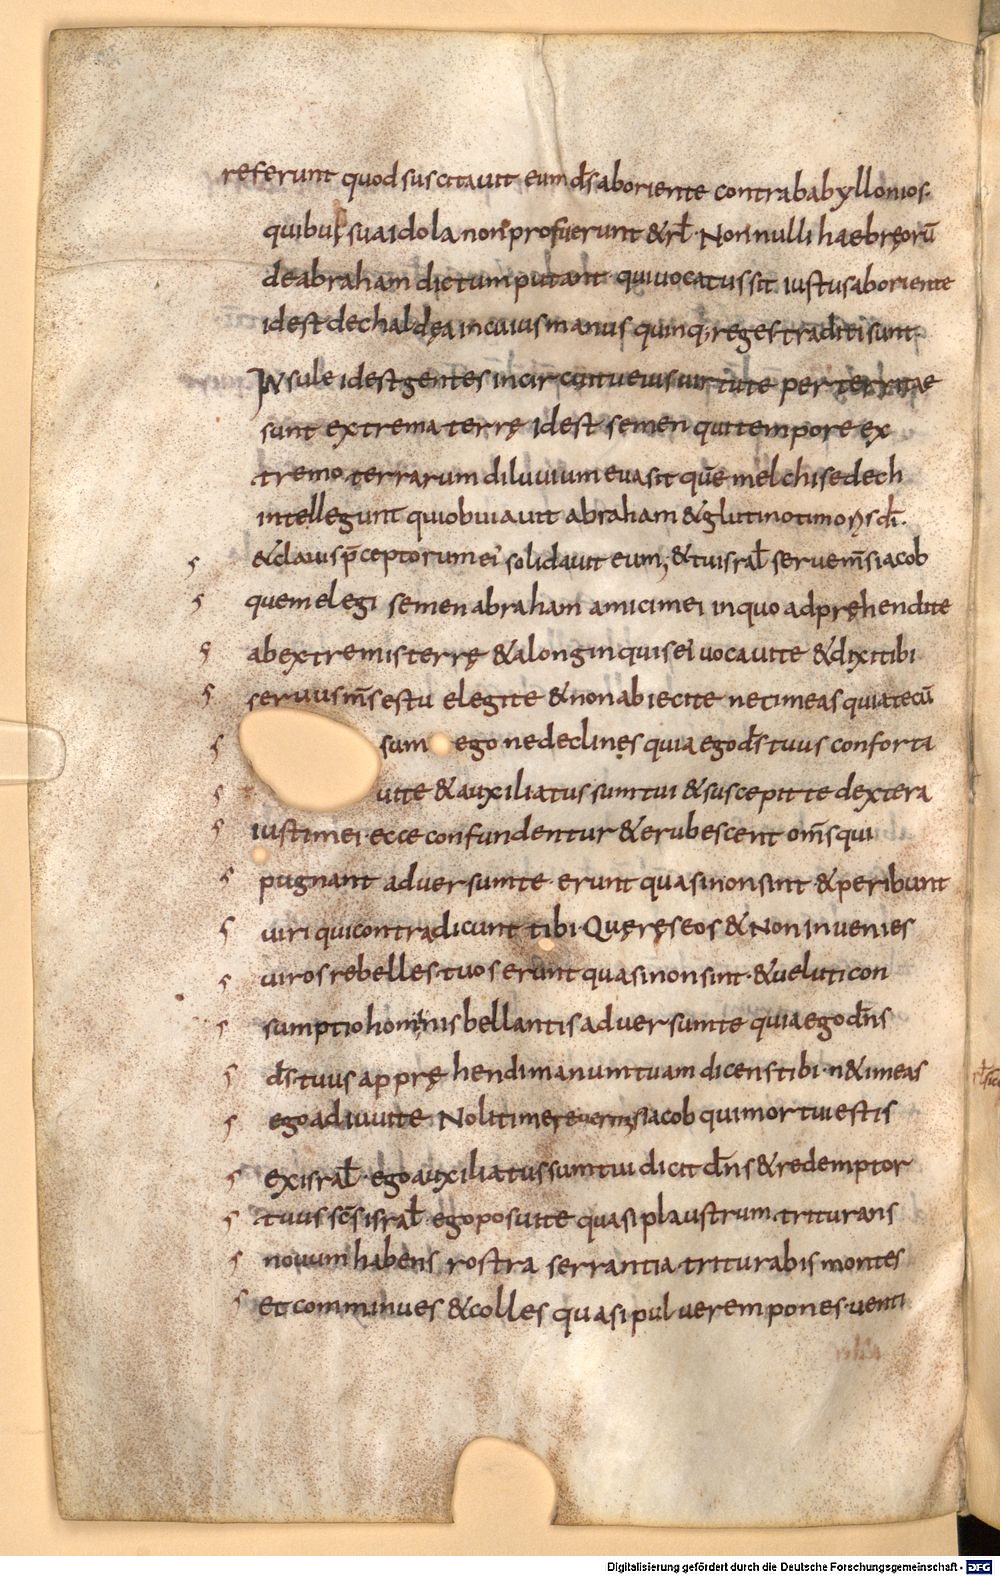 referunt quod suscitauit eum d̄s aboriente contra babyllonios.
quibus sua idola non profuerunt & rł. Non nulli haebręorū
de abraham dictum putant quiuocatus sit iustus aboriente
id est dechaldęa in cuius manus quinq; reges traditi sunt.
INsule id est gentes in circuitu eius uirtute perterritae
sunt extrema terrę id est semen qui tempore ex
tremo terrarum diluuium euasit quē melchisedech
intellegunt qui obuiauit abraham & glutino timoris dī.
& clauis p̄ceptorum ei' solidauit eum; & tu israł serue m̄s iacob
quem elegi semen abraham amici mei in quo adpręhendi te
ab extremis terrę & alonginquis ei' uocaui te & dixi tibi
seruus m̄s es tu elegi te & non abieci te ne timeas quia tecū
sum ego ne declinęs quia ego d̄s tuus conforta
ui te & auxiliatus sum tui & suscepit te dextera
iusti mei. ecce confundentur & erubescent om̄s qui
pugnant aduersum te erunt quasi non sint & peribunt
uiri qui contradicunt tibi. Quęręs eos & Non Inuenies
uiros rebelles tuos erunt quasi non sint. & ueluti con
sumptio hominis bellantis aduersum te quia ego dn̄s
d̄s tuus apprę hendi manum tuam dicens tibi. n& imeas
ego adiuui te Noli timere iacob qui mortui estis
ex israł. ego auxiliatus sum tui dicit dn̄s & redemptor
tuus sc̄s israł ego posui te quasi plaustrum triturans
nouum habens rostra serrantia triturabis montes
et comminues & colles quasi puluerem pones. uenti